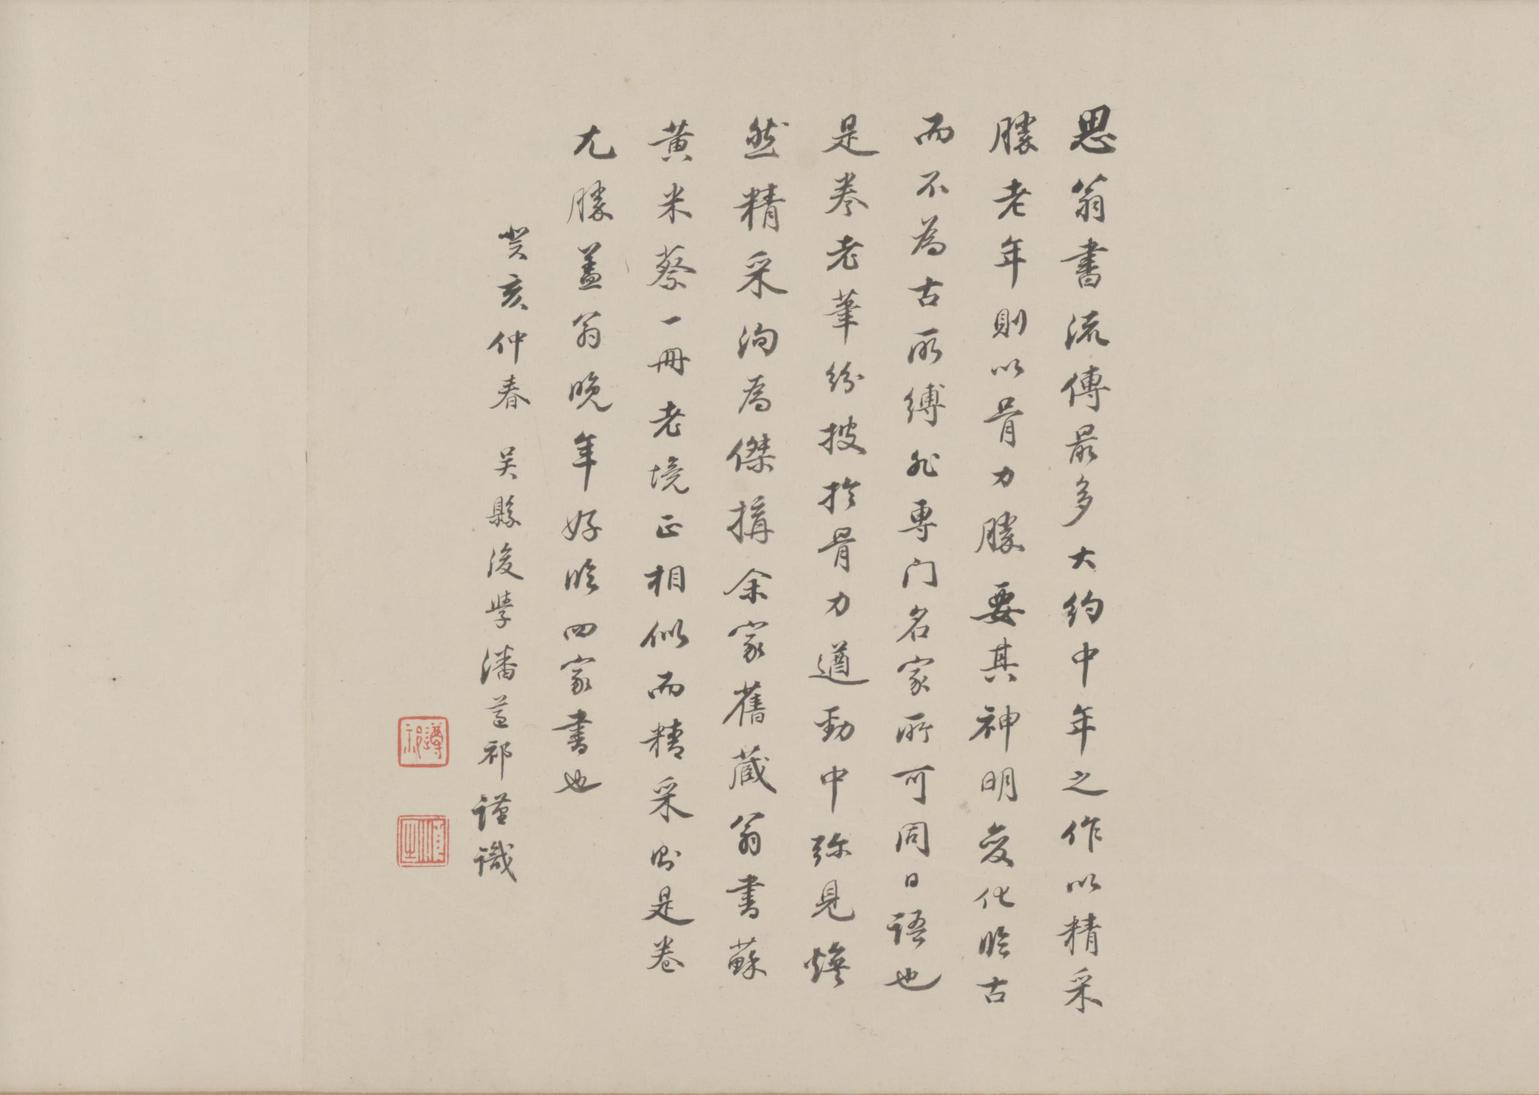 思翁書流傳最多大約中年之作以精采
勝老年則以骨力勝要其神明變化臨古
而不為古所縛非專門名家所可同日語也
是卷老筆紛披於骨力遒勁中彌見煥
然精采洵為傑搆余家舊藏翁書蘇
黃米蔡一冊老境正相似而精采則是卷
尤勝蓋翁晚年好臨四家書也
癸亥仲春 吳縣後學潘遵祁謹識
遵祁